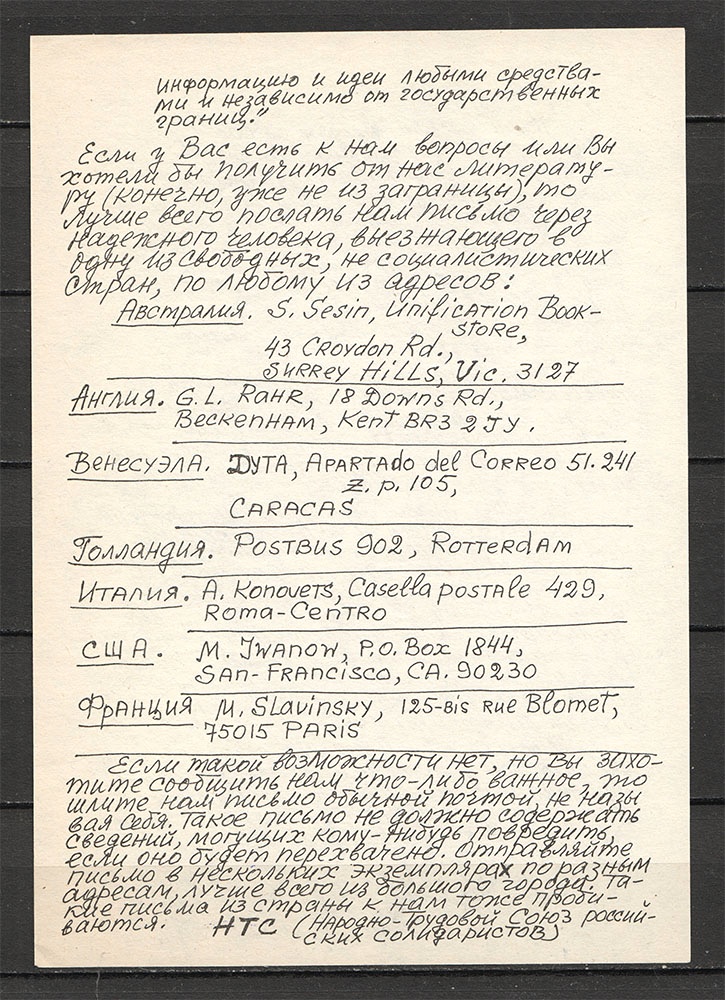 информацию и идеи любыми средства-
ми и независимо от государственных
границ."
Если у Вас есть к нам вопросы или Вы
хотели бы получить от нас литерату-
ру (конечно, уже не из заграницы), то
лучше всего послать нам письмо через
надежного человека, выезжающего в
одну из свободных, не социалистических
стран, по любому из адресов:
Австралия. S. Sesin, Unification Book-
store,
43 Croydon Rd.,
Surrey Hills, Vic. 3127
Англия. G.L. Rahr, 18 Downs Rd.,
Beckenham, Kent BR3 2JY.
Венесуэла. DYTA, Apartado del Correo 51.241
Z.p. 105,
Caracas
Голландия. Postbus 902, Rotterdam
Италия. A. Konovets, Casella postale 429,
Roma-Centro
США. M. Iwanow, P.O. Box 1844,
San-Francisco, CA. 90230
Франция M. Slavinsky, 125-bis rue Blomet,
75015 Paris
Если такой возможности нет, но Вы захо-
тите сообщить нам что-либо важное, то
шлите нам письмо обычной почтой, не назы
вая себя. Такое письмо не должно содержать
сведений, могущих кому-нибудь повредить,
если оно будет перехвачено. Отправляйте
письмо в нескольких экземплярах по разным
адресам, лучше всего из большого города. Та-
кие письма из страны к нам тоже проби-
ваются. НТС (Народно-Трудовый Союз россий-
ских солидаристов)